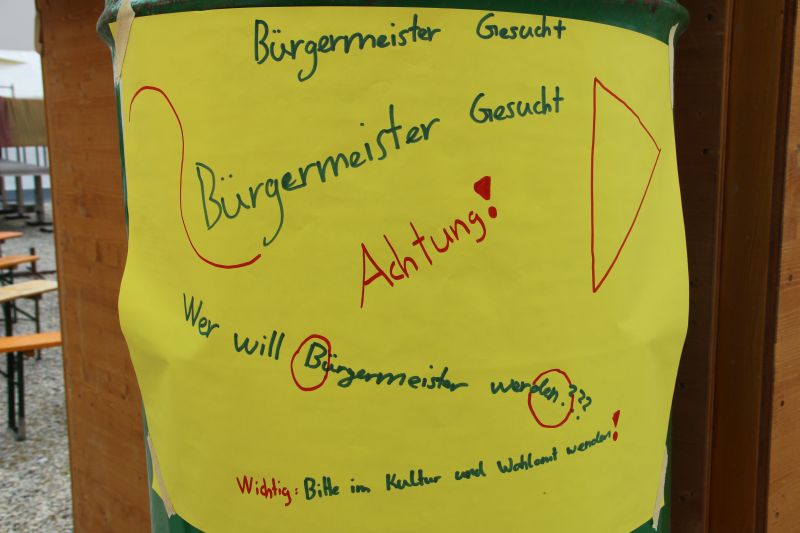 Bürgermeister Gesucht
Bürgermeister Gesucht
Achtung!
Wer will Bürgermeister werden.???
Wichtig: Bitte im Kultur und Wahlamt wenden!